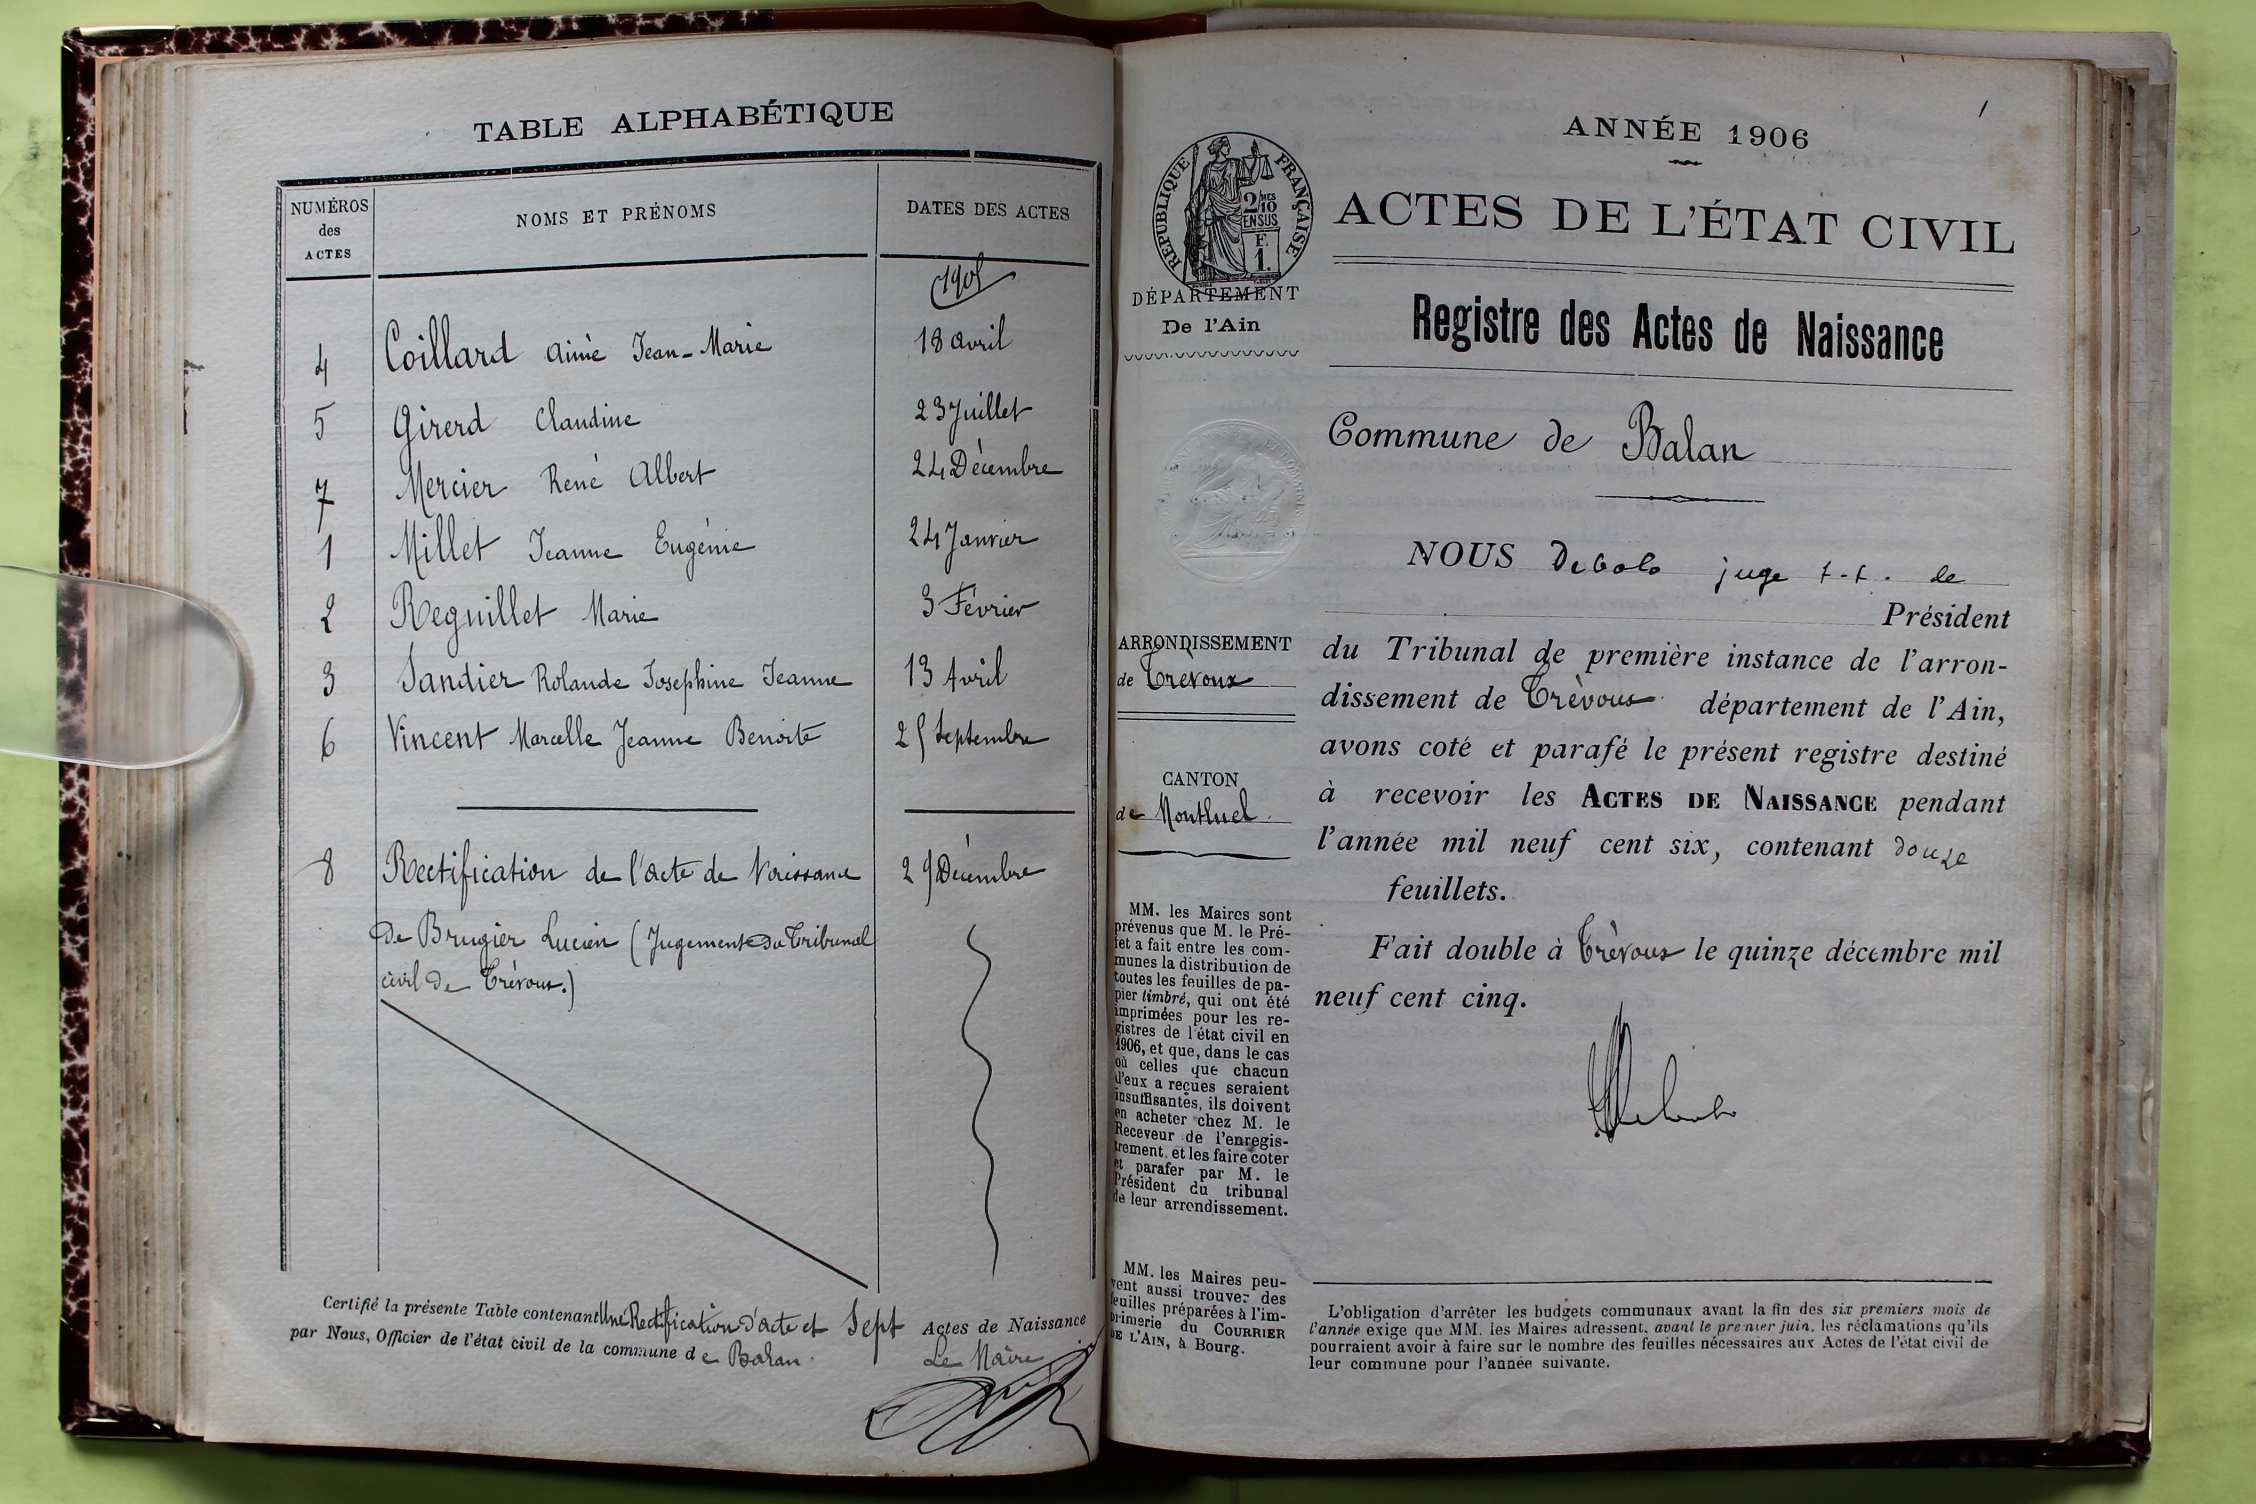 TABLE ALPHABÉTIQUE
NUMÉROS
des
ACTES
NOMS ET PRÉNOMS
DATES DES ACTES
1905
4 Coillard Aimé Jean-Marie 18 Avril
5 Girerd Claudine 23 Juillet
7 Mercier René Albert 24 Décembre
1 Millet Jeanne Eugénie 24 Janvier
2 Reguillet Marie 3 Février
3 Sandier Rolande Josephine Jeanne 13 Avril
6 Vincent Marcelle Jeanne Benoite 25 Septembre
8 Rectification de l'acte de Naissance 29 Décembre
de Brugier Lucien (Jugement du Tribunal
civil de Trévoux.)
Certifié la présente Table contenant Une Rectification d'acte et Sept Actes de Naissance
par Nous, Officier de l'état civil de la commune de Balan.
Le Maire
1
RÉPUBLIQUE FRANÇAISE
2/10 MES
EN SUS
F.
1.
DÉPARTEMENT
De l'Ain
ARRONDISSEMENT
de Trévoux
CANTON
de Montluel.
MM. les Maires sont
prévenus que M. le Pré-
fet a fait entre les com-
munes la distribution de
toutes les feuilles de pa-
pier timbré, qui ont été
imprimées pour les re-
gistres de l'état civil en
1906, et que, dans le cas
où celles que chacun
d'eux a reçues seraient
insuffisantes, ils doivent
en acheter chez M. le
Receveur de l'enregis-
trement, et les faire coter
et parafer par M. le
Président du tribunal
de leur arrondissement.
MM. les Maires peu-
vent aussi trouver des
feuilles préparées à l'im-
primerie du COURRIER
DE L'AIN, à Bourg.
ANNÉE 1906
ACTES DE L'ÉTAT CIVIL
Registre des Actes de Naissance
Commune de Balan
NOUS Debolo juge f.f. de
Président
du Tribunal de première instance de l'arron-
dissement de Trévoux département de l'Ain,
avons coté et parafé le présent registre destiné
à recevoir les ACTES DE NAISSANCE pendant
l'année mil neuf cent six, contenant douze
feuillets.
Fait double à Trévoux le quinze décembre mil
neuf cent cinq.
L'obligation d'arrêter les budgets communaux avant la fin des six premiers mois de
l'année exige que MM. les Maires adressent, avant le premier juin, les réclamations qu'ils
pourraient avoir à faire sur le nombre des feuilles nécessaires aux Actes de l'état civil de
leur commune pour l'année suivante.